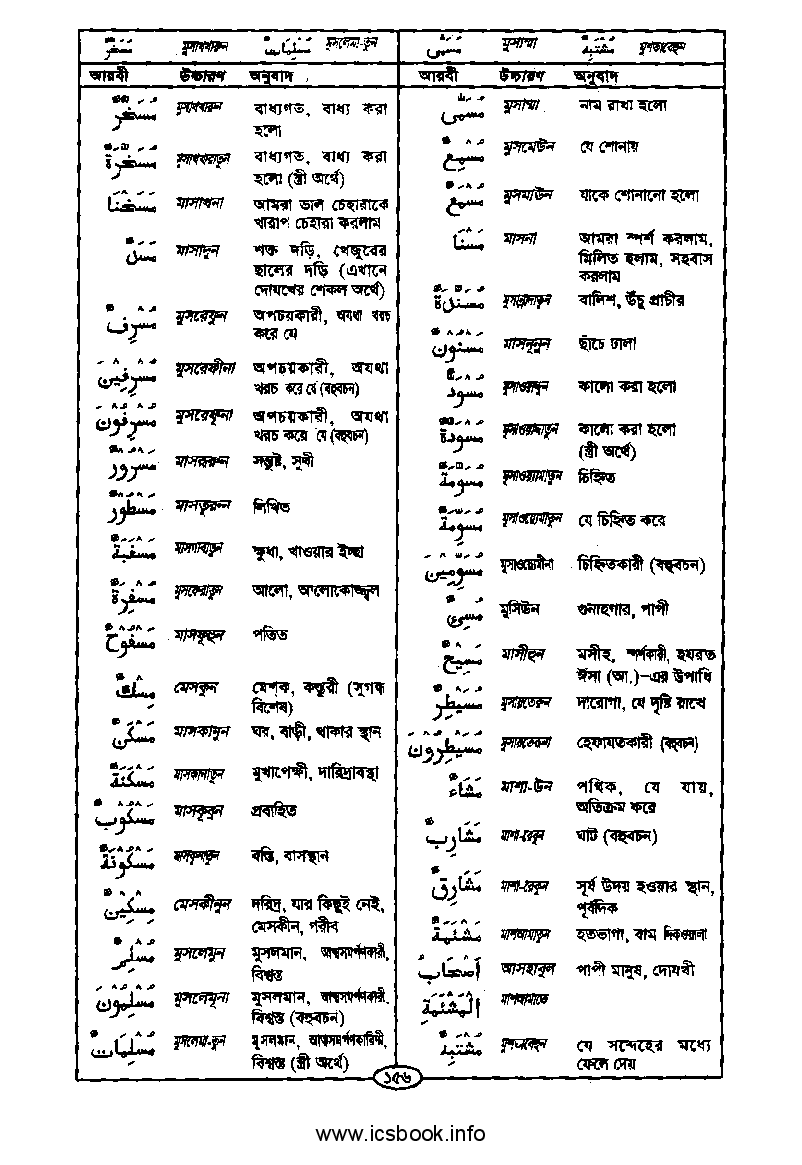 مُسَخَّرٌ মুসাখখারুন مُسْلِمَاتٌ মুসলেমা-তুন
আরবী উচ্চারণ অনুবাদ
مُسَخَّرٌ মুসাখখারুন বাধ্যগত, বাধ্য করা
হলো
مُسَخَّرَةٌ মুসাখখারাতুন বাধ্যগত, বাধ্য করা
হলো (স্ত্রী অর্থে)
مَسَخْنَا মাসাখনা আমরা ভাল চেহারাকে
খারাপ চেহারা করলাম
مَسَدٌ মাসাদুন শক্ত দড়ি, খেজুরের
ছালের দড়ি (এখানে
দোযখের শেকল অর্থে)
مُسْرِفٌ মুসরেফুন অপচয়কারী, অযথা খরচ
করে যে
مُسْرِفِيْنَ মুসরেফীনা অপচয়কারী, অযথা
খরচ করে যে (বহুবচন)
مُسْرِفُوْنَ মুসরেফূনা অপচয়কারী, অযথা
খরচ করে যে (বহুবচন)
مَسْرُوْرٌ মাসরূরুন সন্তুষ্ট, সুখী
مَسْطُوْرٌ মাসতূরুন লিখিত
مَسْغَبَةٌ মাসগাবাতুন ক্ষুধা, খাওয়ার ইচ্ছা
مُسْفِرَةٌ মুসফেরাতুন আলো, আলোকোজ্জ্বল
مَسْفُوْحٌ মাসফূহুন পতিত
مِسْكٌ মেসকুন মেশক, কস্তুরী (সুগন্ধ
বিশেষ)
مَسْكَنٌ মাসকানুন ঘর, বাড়ী, থাকার স্থান
مَسْكَنَةٌ মাসকানাতুন মুখাপেক্ষী, দারিদ্রাবস্থা
مَسْكُوْبٌ মাসকূবুন প্রবাহিত
مَسْكُوْنَةٌ মাসকূনাতুন বস্তি, বাসস্থান
مِسْكِيْنٌ মেসকীনুন দরিদ্র, যার কিছুই নেই,
মেসকীন, গরীব
مُسْلِمٌ মুসলেমুন মুসলমান, আত্মসমর্পণকারী,
বিশ্বস্ত
مُسْلِمُوْنَ মুসলেমূনা মুসলমান, আত্মসমর্পণকারী,
বিশ্বস্ত (বহুবচন)
مُسْلِمَاتٌ মুসলেমা-তুন মুসলমান, আত্মসমর্পণকারিণী,
বিশ্বস্ত (স্ত্রী অর্থে)
مُسَمًّى মুসাম্মা مُشْتَبِهٌ মুশতাবেহুন
আরবী উচ্চারণ অনুবাদ
مُسَمًّى মুসাম্মা নাম রাখা হলো
مُسْمِعٌ মুসমেউন যে শোনায়
مُسْمَعٌ মুসমাউন যাকে শোনানো হলো
مَسْنَا মাসনা আমরা স্পর্শ করলাম,
মিলিত হলাম, সহবাস
করলাম
مُسَنَّدَةٌ মুসান্নাদাতুন বালিশ, উঁচু প্রাচীর
مَسْنُوْنٌ মাসনূনুন ছাঁচে ঢালা
مُسْوَدٌّ কালো করা হলো
مُسْوَدَّةٌ কালো করা হলো
(স্ত্রী অর্থে)
مُسَوَّمَةٌ মুসাওয়ামাতুন চিহ্নিত
مُسَوِّمَةٌ মুসাওয়েমাতুন যে চিহ্নিত করে
مُسَوِّمِيْنَ মুসাওয়েমীনা চিহ্নিতকারী (বহুবচন)
مُسِيْءٌ মুসিউন গুনাহগার, পাপী
مَسِيْحٌ মাসীহুন মসীহ, স্পর্শকারী, হযরত
ঈসা (আ.)-এর উপাধি
مُسَيْطِرٌ মুসায়তেরুন দারোগা, যে দৃষ্টি রাখে
مُسَيْطِرُوْنَ মুসায়তেরুনা হেফাযতকারী (বহুবচন)
مَشَّاءٌ মাশা-উন পথিক, যে যায়,
অতিক্রম করে
مَشَارِبُ মাশা-রেবুন ঘাট (বহুবচন)
مَشَارِقُ মাশা-রেকুন সূর্য উদয় হওয়ার স্থান,
পূর্বদিক
مَشْئَمَةٌ মাশআমাতুন হতভাগা, বাম দিকওয়ালা
أَصْحَابُ আসহাবুল পাপী মানুষ, দোযখী
الْمَشْئَمَةِ মাশআমাতে
مُشْتَبِهٌ মুশতাবেহুন যে সন্দেহের মধ্যে
ফেলে দেয়
১৫৬
www.icsbook.info